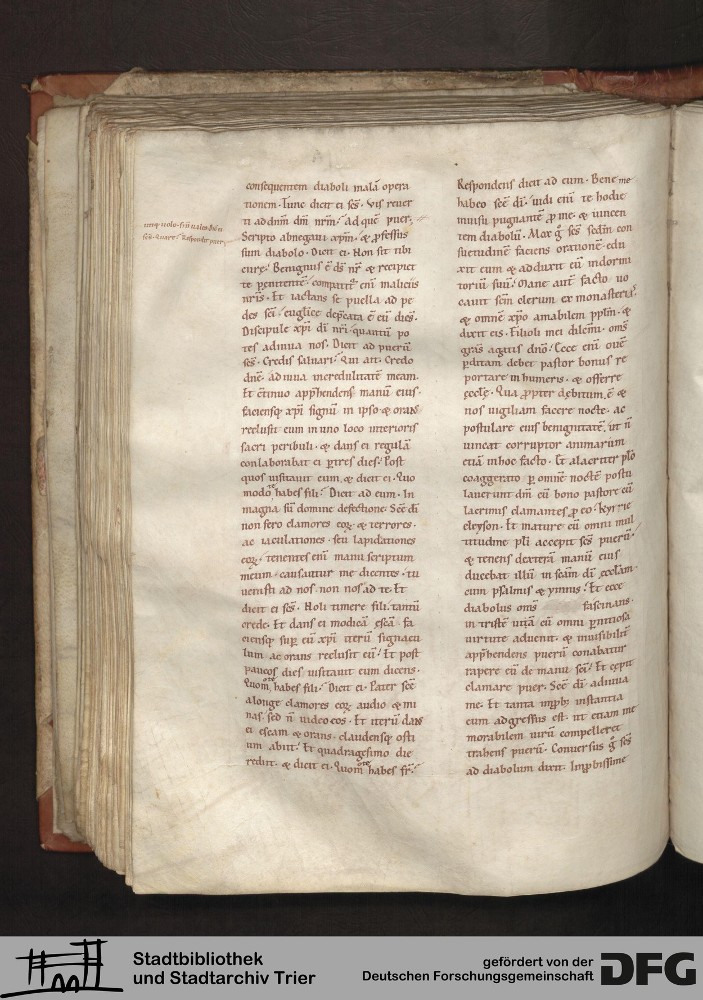 consequentem diaboli malā opera
tionem. Tunc dicit ei scs̄. Vis rever
ti ad dnm̄ dm̄ nrm̄? ad quē puer.
utiq; uolo.
Scripto abnegaui xpm̄. & ꝓfessus
sum diabolo. Dicit ei. Non sit tibi
cure. Benignus ē ds̄ nr̄ & recipiet
te penitentē. compatit᷑ enī maliciis
nr̄is. Et iactans se puella ad pe
des sc̄i euglice dep̄cata ē eū diēs.
Discipule xpi dī nr̄i quantū po
tes adiuua nos. Dicit ad puerū
scs̄. Credis saluari? Qui ait. Credo
dnē. adiuua incredulitatē meam.
Et ctinuo app̄hendens manū eius.
faciensq; xpi signū in ipso & orans
reclusit eum in uno loco interioris
sacri peribuli. & dans ei regulā
conlaborabat ei p tres dies. Post
quos uisitauit eum & dicit ei. Quo
modo te habes fili? Dicit ad eum. In
magna sū domine defectione. Scē dī
non fero clamores eoꝝ & terrores.
ac iaculationes. seu lapidationes
eoꝝ. tenentes enī manu scriptum
meum. causantur me dicentes. tu
uenisti ad nos. non nos ad te. Et
dicit ei scs̄. Noli timere fili. tantū
crede. Et dans ei modicā escā. fa
ciensq; sup eū xpi iterū signacu
lum ac orans reclusit eū. Et post
paucos dies uisitauit eum dicens.
Quom̄ te habes fili? Dicit ei. Pater scē
a longe clamores eoꝝ audio & mi
nas. sed n̄ uideo eos. Et iterū dans
ei escam & orans. claudensq; osti
um abiit. Et quadragesimo die
rediit. & dicit ei. Quom̄ te habes fr̄?
Respondens dicit ad eum. Bene me
habeo scē dī. uidi enī te hodie
in uisu pugnantē ꝓ me. & uincen
tem diabolū. Mox g̊ scs̄ scdm̄ con
suetudinē faciens orationē edu
xit eum & adduxit eū in dormi
toriū suū. Mane aut̄ facto uo
cauit scm̄ clerum ex monasteriis.
& omnē xpo amabilem pplm̄. &
dixit eis. Filioli mei dilc̄mi. oms̄
gras̄ agitis dnō. Ecce enī ouē
ꝑditam debet pastor bonus re
portare in humeris. & offerre
eccłę. Qua ꝓpter debitum ē &
nos uigiliam facere nocte. ac
postulare eius benignitatē. ut n̄
uincat corruptor animarum
etiā in hoc facto. Et alacriter plo
coaggerato ꝑ omnē noctē postu
lauerunt dm̄ cū bono pastore cū
lacrimis clamantes ꝓ eo. Kyrrie
eleyson. Et mature cū omni mul
titudine pli accepit scs̄ puerū.
& tenens dexterā manū eius
ducebat illū in scam̄ dī ecclam̄.
cum psalmis & ymnis. Et ecce
diabolus oms̄ fascinans.
in tristē uitā cū omni ꝑnitiosa
uirtute aduenit. & inuisibilit̄
app̄hendens puerū conabatur
rapere eū de manu scī. Et cępit
clamare puer. Scē dī adiuua
me. Et tanta impb̄ instantia
eum adgressus est. ut etiam me
morabilem uirū compelleret
trahens puerū. Conuersus g̊ scs̄
ad diabolum dixit. Impbissime
Stadtbibliothek
und Stadtarchiv Trier
gefördert von der
Deutschen Forschungsgemeinschaft
DFG